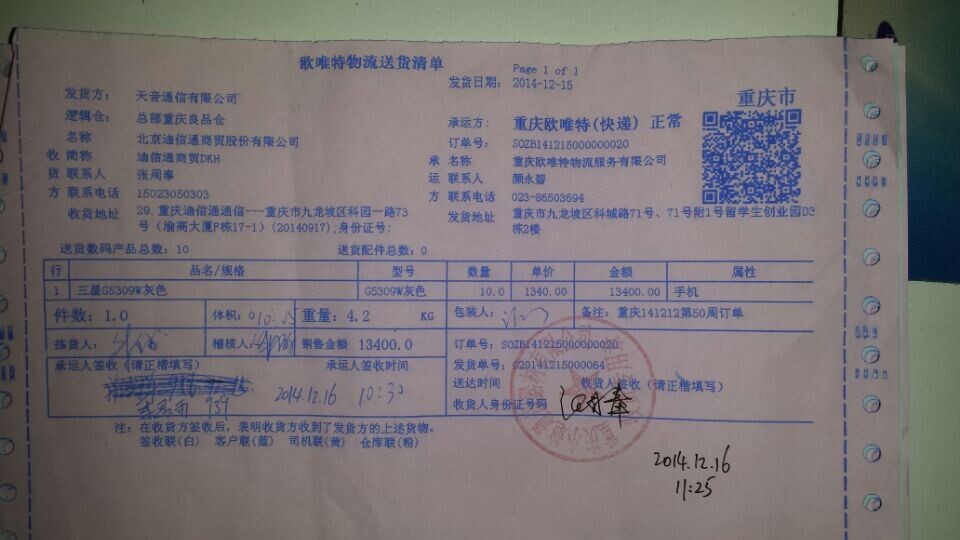 欧唯特物流送货清单
Page 1 of 1
发货日期: 2014-12-15
重庆市
发货方: 天音通信有限公司
逻辑仓: 总部重庆良品仓
承运方: 重庆欧唯特(快递) 正常
名称 北京迪信通商贸股份有限公司
订单号: SOZB141215000000020
收 简称 迪信通商贸DKH
承 名称 重庆欧唯特物流服务有限公司
货 联系人 张周奉
运 联系人 颜永碧
方 联系电话 15023050303
方 联系电话 023-86503694
收货地址 29.重庆迪信通通信---重庆市九龙坡区科园一路73
号(渝高大厦F栋17-1)(20140917);身份证号:
发货地址 重庆市九龙坡区科城路71号、71号附1号留学生创业园D3
栋2楼
送货数码产品总数: 10 送货配件总数: 0
行 品名/规格 型号 数量 单价 金额 属性
1 三星G5309W灰色 G5309W灰色 10.0 1340.00 13400.00 手机
件数: 1.0 体积: 重量: 4.2 KG 包装人: 备注: 重庆141212第50周订单
拣货人: 稽核人: 销售金额 13400.0 订单号: SOZB141215000000020
承运人签收(请正楷填写) 承运人签收时间 发货单号: S20141215000064
送达时间 收货人签收(请正楷填写)
939 2014.12.16 10:30
收货人身份证号码
注: 在收货方签收后,表明收货方收到了发货方的上述货物。
签收联(白) 客户联(蓝) 司机联(黄) 仓库联(粉)
2014.12.16
11:25